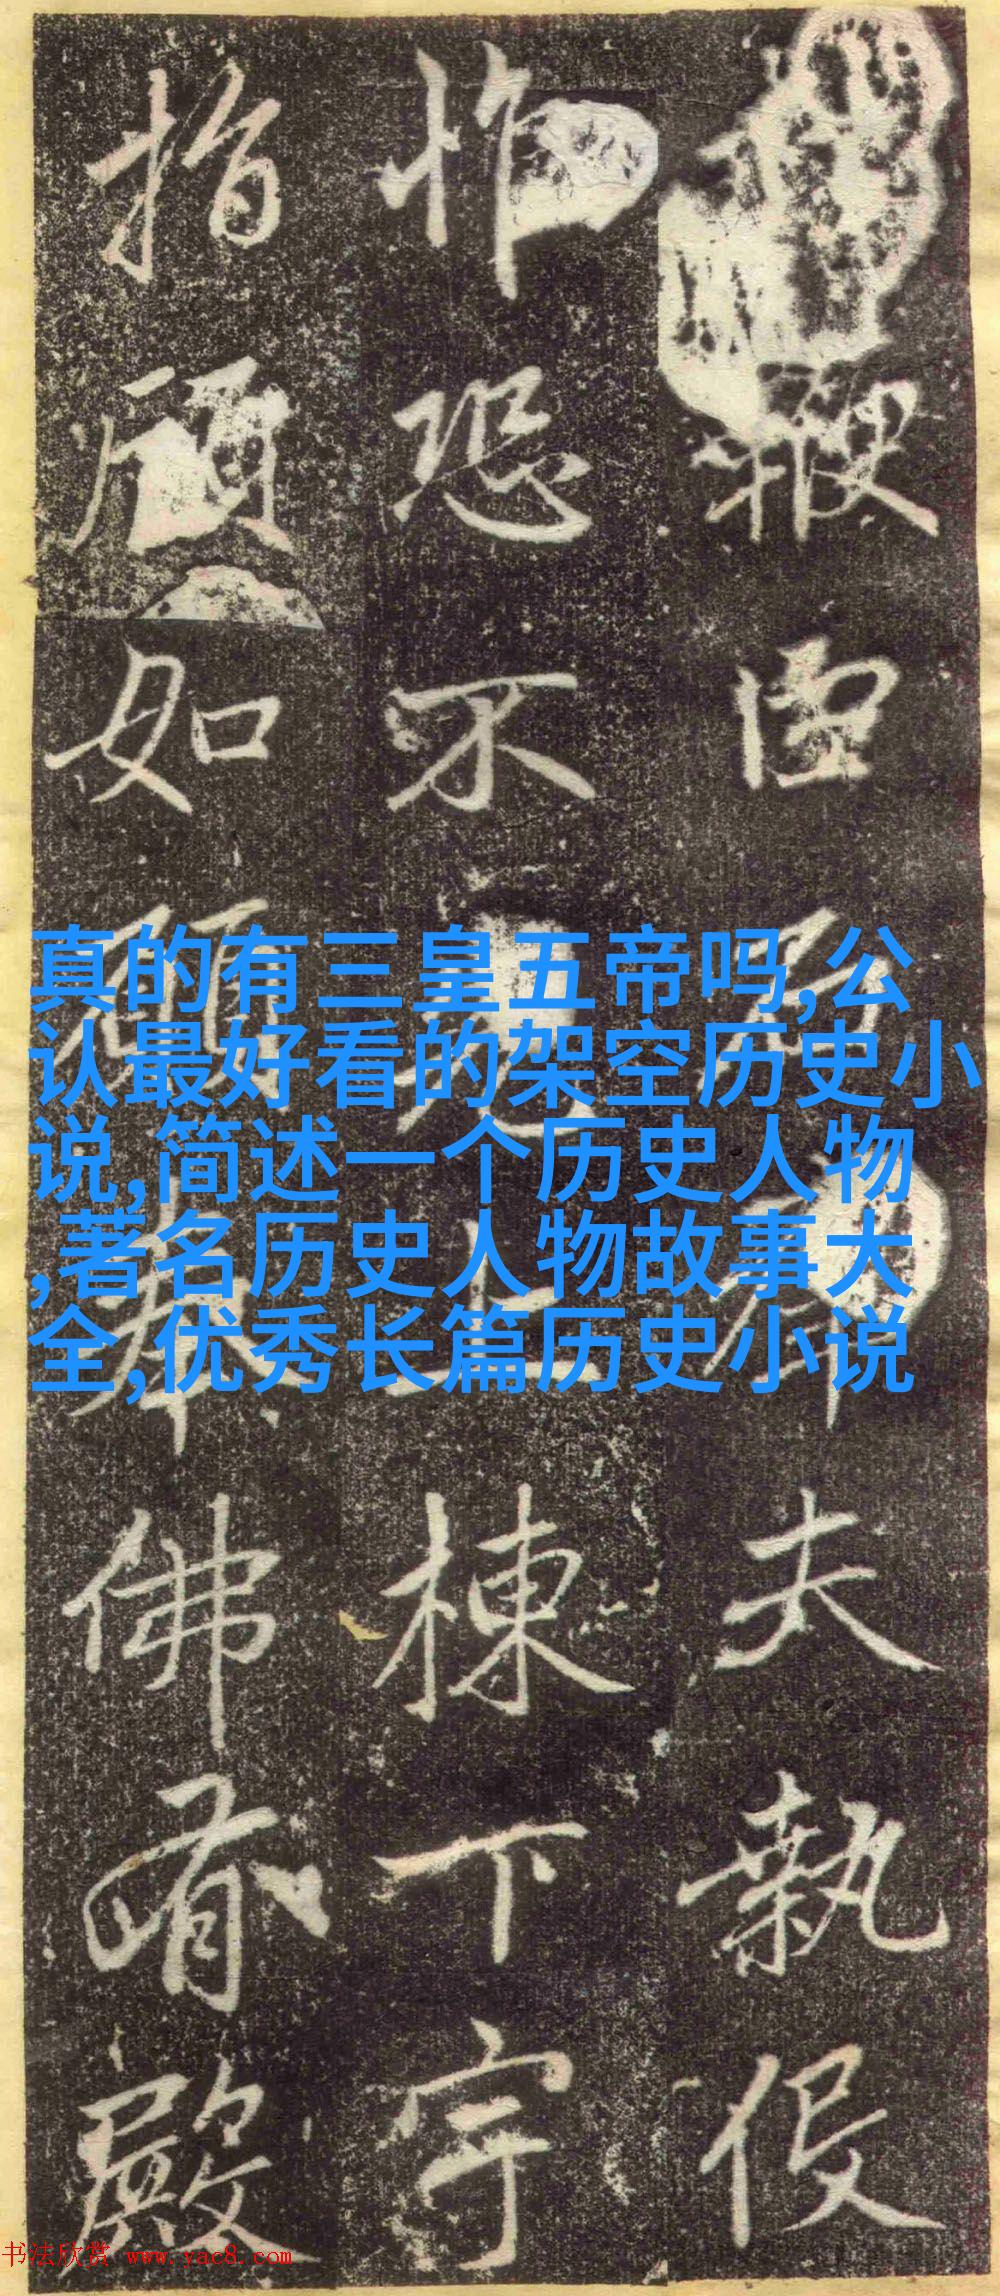 夫執役
恐不上棟下宇
指顧如願奉佛有殿
真的有三皇五帝吗,公
认最好看的架空历史小
说,简述一个历史人物
,著名历史人物故事大
全,优秀长篇历史小说
书法欣赏 www.yac8.com